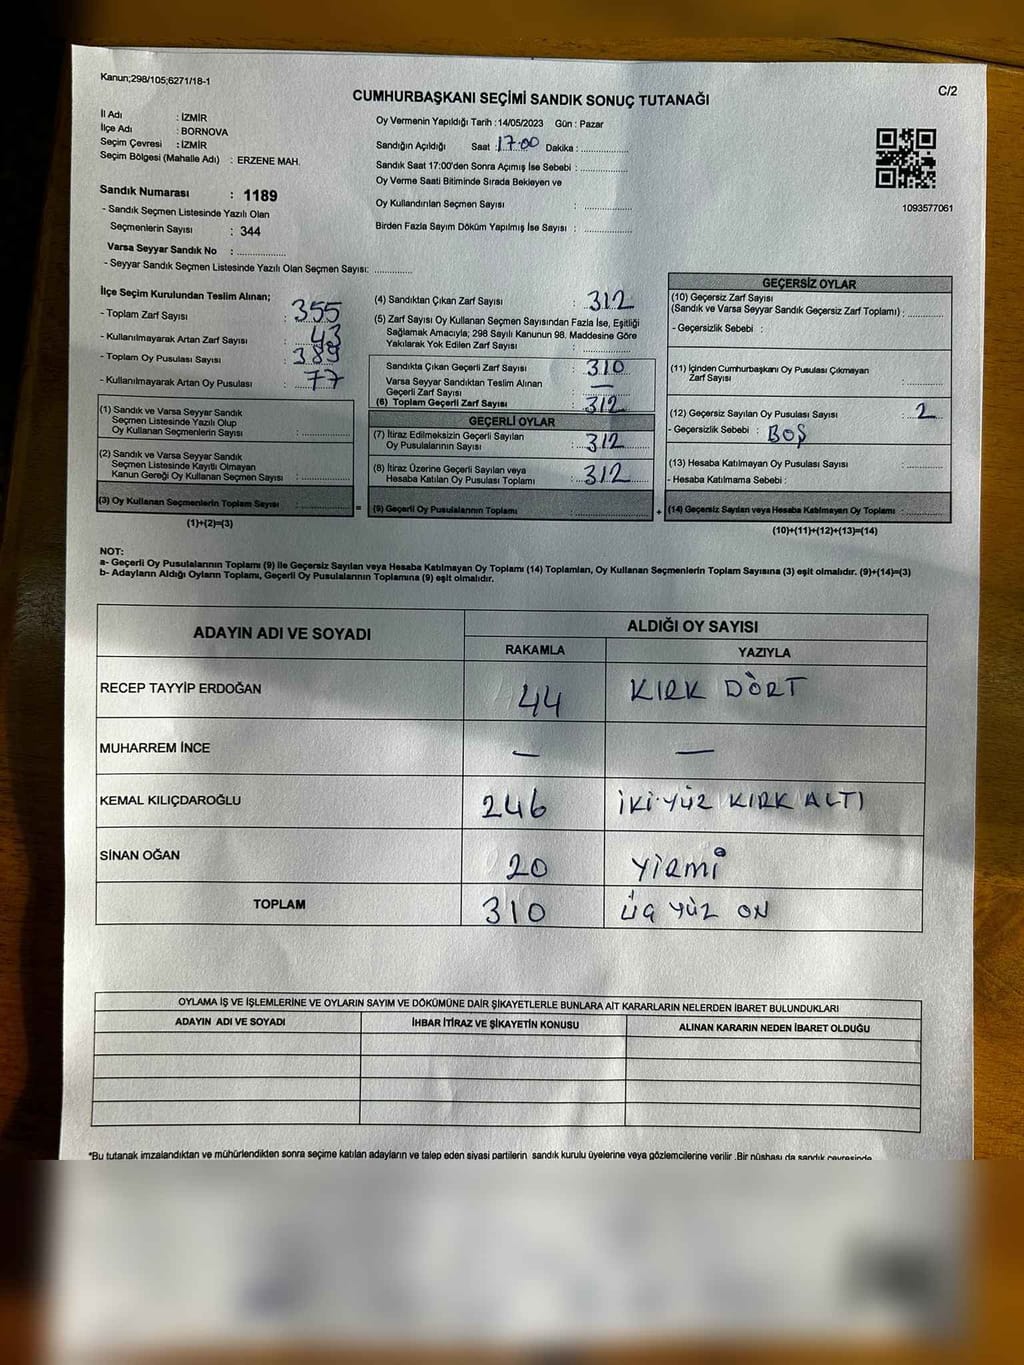 Kanun;298/105;6271/18-1
C/2
CUMHURBAŞKANI SEÇİMİ SANDIK SONUÇ TUTANAĞI
İl Adı : İZMİR
İlçe Adı : BORNOVA
Seçim Çevresi : İZMİR
Seçim Bölgesi (Mahalle Adı) : ERZENE MAH.
Sandık Numarası : 1189
- Sandık Seçmen Listesinde Yazılı Olan
Seçmenlerin Sayısı : 344
Varsa Seyyar Sandık No : ..............
- Seyyar Sandık Seçmen Listesinde Yazılı Olan Seçmen Sayısı: ............
Oy Vermenin Yapıldığı Tarih : 14/05/2023 Gün : Pazar
Sandığın Açıldığı Saat : 17.00 Dakika : ..............
Sandık Saat 17:00'den Sonra Açımış İse Sebebi : ..............
Oy Verme Saati Bitiminde Sırada Bekleyen ve
Oy Kullandırılan Seçmen Sayısı : ..............
Birden Fazla Sayım Döküm Yapılmış İse Sayısı : ..............
1093577061
İlçe Seçim Kurulundan Teslim Alınan;
- Toplam Zarf Sayısı : 355
- Kullanılmayarak Artan Zarf Sayısı : 43
- Toplam Oy Pusulası Sayısı : 389
- Kullanılmayarak Artan Oy Pusulası : 77
(1) Sandık ve Varsa Seyyar Sandık
Seçmen Listesinde Yazılı Olup
Oy Kullanan Seçmenlerin Sayısı : ..............
(2) Sandık ve Varsa Seyyar Sandık
Seçmen Listesinde Kayıtlı Olmayan
Kanun Gereği Oy Kullanan Seçmen Sayısı : ..............
(3) Oy Kullanan Seçmenlerin Toplam Sayısı : ..............
(1)+(2)=(3)
(4) Sandıktan Çıkan Zarf Sayısı : 312
(5) Zarf Sayısı Oy Kullanan Seçmen Sayısından Fazla İse, Eşitliği
Sağlamak Amacıyla; 298 Sayılı Kanunun 98. Maddesine Göre
Yakılarak Yok Edilen Zarf Sayısı : ..............
Sandıkta Çıkan Geçerli Zarf Sayısı : 310
Varsa Seyyar Sandıktan Teslim Alınan
Geçerli Zarf Sayısı : —
(6) Toplam Geçerli Zarf Sayısı : 312
GEÇERLİ OYLAR
(7) İtiraz Edilmeksizin Geçerli Sayılan
Oy Pusulalarının Sayısı : 312
(8) İtiraz Üzerine Geçerli Sayılan veya
Hesaba Katılan Oy Pusulası Toplamı : 312
= (9) Geçerli Oy Pusulalarının Toplamı : ..............
GEÇERSİZ OYLAR
(10) Geçersiz Zarf Sayısı
(Sandık ve Varsa Seyyar Sandık Geçersiz Zarf Toplamı) : ..........
- Geçersizlik Sebebi :
(11) İçinden Cumhurbaşkanı Oy Pusulası Çıkmayan
Zarf Sayısı : ..........
(12) Geçersiz Sayılan Oy Pusulası Sayısı : 2
- Geçersizlik Sebebi : BOŞ
(13) Hesaba Katılmayan Oy Pusulası Sayısı : ..........
- Hesaba Katılmama Sebebi :
+ (14) Geçersiz Sayılan veya Hesaba Katılmayan Oy Toplamı : ..........
(10)+(11)+(12)+(13)=(14)
NOT:
a- Geçerli Oy Pusulalarının Toplamı (9) ile Geçersiz Sayılan veya Hesaba Katılmayan Oy Toplamı (14) Toplamları, Oy Kullanan Seçmenlerin Toplam Sayısına (3) eşit olmalıdır. (9)+(14)=(3)
b- Adayların Aldığı Oyların Toplamı, Geçerli Oy Pusulalarının Toplamına (9) eşit olmalıdır.
ADAYIN ADI VE SOYADI ALDIĞI OY SAYISI
RAKAMLA YAZIYLA
RECEP TAYYİP ERDOĞAN 44 KIRK DÖRT
MUHARREM İNCE — —
KEMAL KILIÇDAROĞLU 246 İKİ YÜZ KIRK ALTI
SİNAN OĞAN 20 YİRMİ
TOPLAM 310 ÜÇ YÜZ ON
OYLAMA İŞ VE İŞLEMLERİNE VE OYLARIN SAYIM VE DÖKÜMÜNE DAİR ŞİKAYETLERLE BUNLARA AİT KARARLARIN NELERDEN İBARET BULUNDUKLARI
ADAYIN ADI VE SOYADI İHBAR İTİRAZ VE ŞİKAYETİN KONUSU ALINAN KARARIN NEDEN İBARET OLDUĞU
*Bu tutanak imzalandıktan ve mühürlendikten sonra seçime katılan adayların ve talep eden siyasi partilerin sandık kurulu üyelerine veya gözlemcilerine verilir .Bir nüshası da sandık çevresinde